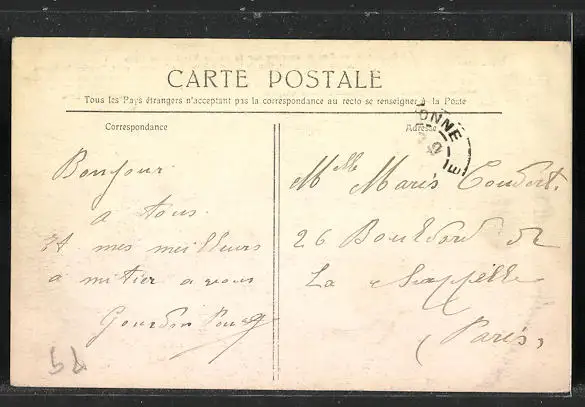 CARTE POSTALE
Tous les Pays étrangers n'acceptant pas la correspondance au recto se renseigner à la Poste
Correspondance
Adresse
ONNE
Bonjour
a tous
Et mes meilleurs
a mitier a vous
Gourdon
Mlle Maris Coudert.
26 Bouldord de
La Chappelle
(Paris)